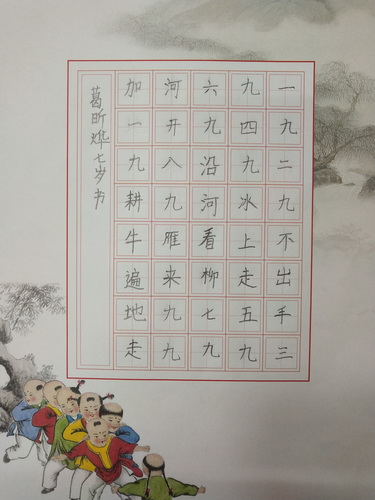 一九二九不出手三
九四九冰上走五九
六九沿河看柳七九
河开八九雁来九九
加一九耕牛遍地走
葛昕烨七岁书